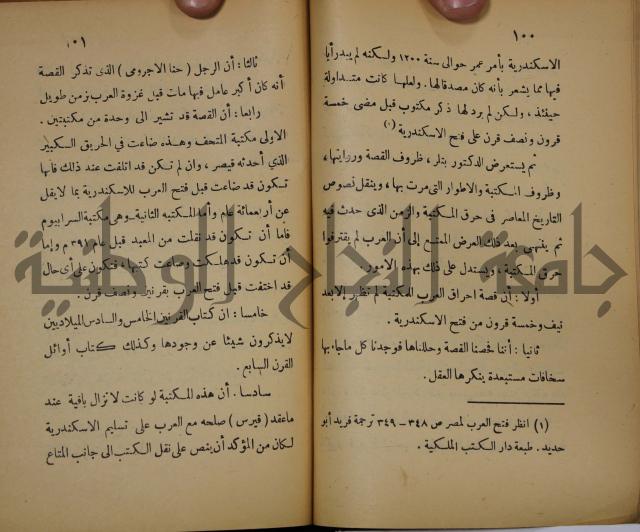 ١٠٠
الاسكندرية بأمر عمر حوالى سنة ١٢٠٠ ولكنه لم يبد رأيا
فيها مما يشعر بأنه كان مصدقا لها. ولعلها كانت متداولة
حينئذ، ولكن لم يرد لها ذكر مكتوب قبل مضى خمسة
قرون ونصف قرن على فتح الاسكندرية (١)
ثم يستعرض الدكتور بتلر، ظروف القصة وروايتها،
وظروف المكتبة والاطوار التى مرت بها، وينقل نصوص
التاريخ المعاصر فى حرق المكتبة والزمن الذى حدث فيه
ثم ينتهى بعد ذلك العرض الممتع إلى أن العرب لم يقترفوا
حرق المكتبة، ويستدل على ذلك بهذه الامور
أولا: أن قصة احراق العرب للمكتبة لم تظهر إلا بعد
نيف وخمسة قرون من فتح الاسكندرية.
ثانيا: أننا فحصنا القصة وحللناها فوجدنا كل ماجاء بها
سخافات مستبعدة ينكرها العقل.
(١) انظر فتح العرب لمصر ص ٣٤٨ – ٣٤٩ ترجمة فريد أبو
حديد. طبعة دار الكتب الملكية.
١٠١
ثالثا: أن الرجل (حنا الاجرومى) الذى تذكر القصة
أنه كان أكبر عامل فيها مات قبل غزوة العرب بزمن طويل
رابعا: أن القصة قد تشير الى وحدة من مكتبتين.
الاولى مكتبة المتحف وهذه ضاعت في الحريق الكبير
الذي أحدثه قيصر، وان لم تكن قد اتلفت عند ذلك فانها
تكون قد ضاعت قبل فتح العرب للاسكندرية بما لايقل
عن أربعمائة عام وأما المكتبه الثانية وهى مكتبة السرابيوم
فاما أن تكون قد نقلت من المعبد قبل عام ٣٩١ م وإما
أن تكون قد هلكت وضاعت كتبها، فتكون على أى حال
قد اختفت قبل فتح العرب بقرنين ونصف قرن.
خامسا: ان كتاب القرنين الخامس والسادس الميلاديين
لايذكرون شيئا عن وجودها وكذلك كتاب أوائل
القرن السابع.
سادسا. أن هذه المكتبة لو كانت لاتزال باقية عند
ماعقد (قيرس) صلحه مع العرب على تسليم الاسكندرية
لكان من المؤكد أن ينص على نقل الكتب الى جانب المتاع
جامعة النجاح الوطنية